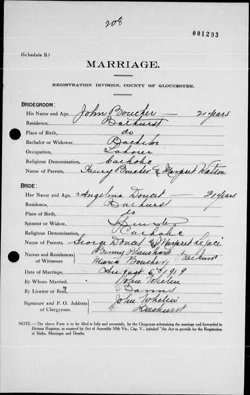 206
001293
(Schedule B.)
MARRIAGE.
REGISTRATION DIVISION, COUNTY OF GLOUCESTER.
BRIDEGROOM:
His Name and Age, John Boucher 21 years
Residence, Bathurst
Place of Birth, do
Bachelor or Widower, Bachelor
Occupation, Laborer
Religious Denomination, Catholic
Name of Parents, Henry Boucher & Margaret Watson
BRIDE:
Her Name and Age, Angelina Doucet 21 years
Residence, Bathurst
Place of Birth, do
Spinster or Widow, Spinster
Religious Denomination, Catholic
Name of Parents, George Doucet & Margaret
Names and Residences of Witnesses Blanchard Maria Boucher Bathurst
Date of Marriage, August 6th 1919
By Whom Married, John Whelan
By License or Banns, Banns
Signature and P. O. Address of Clergyman, John Whelan
Bathurst
NOTE.—The above Form is to be filled in fully and accurately, by the Clergyman solemnizing the marriage and forwarded to
Division Registrar, as required by Act of Assembly 50th Vic., Cap. V., intituled "An Act to provide for the Registration
of Births, Marriages and Deaths.